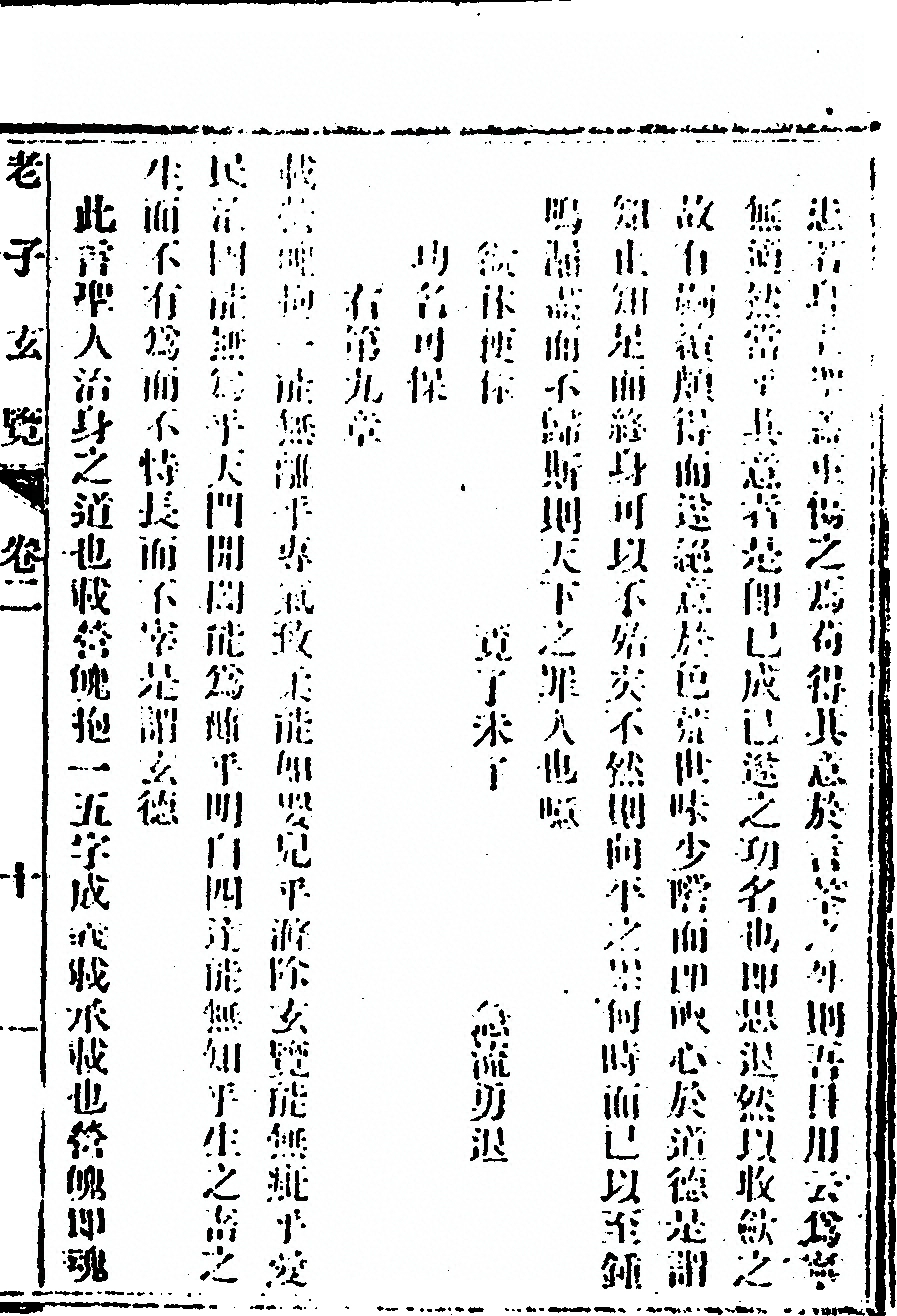 若身之爲苟得其意於言筌之外則吾日用云爲寧
無適然當乎其意者是即已成已遂之功名也即思退然以收斂之
故有嗣續頗得而遂絕意於色荒世味少嚐而即心於道德是謂
知止知足而終身可以不殆矣不然則向平之累何時而已以至鍾
鳴漏盡而不歸斯則天下之罪人也噫
欲休便休　覓了未了　急流勇退
功名可保
右第九章
載營魄抱一能無離乎專氣致柔能如嬰兒乎滌除玄覽能無疵乎愛
民治國能無爲乎天門開闔能爲雌乎明白四達能無知乎生之畜之
生而不有爲而不恃長而不宰是謂玄德
此言聖人治身之道也載營魄抱一五字成義載承載也營魄即魂
老子玄覽　卷二　十